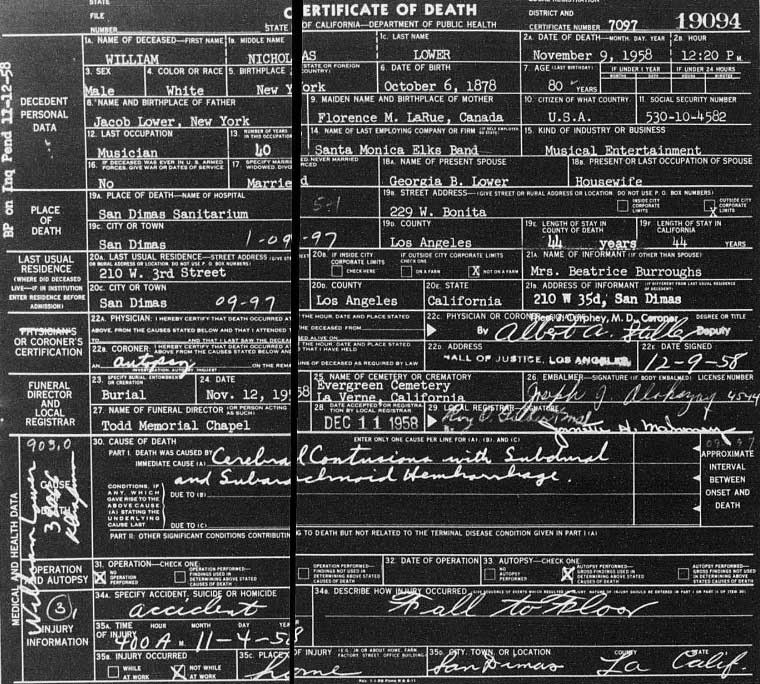 STATE
FILE
NUMBER
STATE
CERTIFICATE OF DEATH
OF CALIFORNIA—DEPARTMENT OF PUBLIC HEALTH
DISTRICT AND
CERTIFICATE NUMBER 7097
19094
BP on Inq Pend 12-12-58
DECEDENT PERSONAL DATA
1a. NAME OF DECEASED—FIRST NAME
WILLIAM
1b. MIDDLE NAME
NICHOLAS
1c. LAST NAME
LOWER
2a. DATE OF DEATH—MONTH, DAY, YEAR
November 9, 1958
2b. HOUR
12:20 P M.
3. SEX
Male
4. COLOR OR RACE
White
5. BIRTHPLACE (STATE OR FOREIGN COUNTRY)
New York
6. DATE OF BIRTH
October 6, 1878
7. AGE (LAST BIRTHDAY)
80 YEARS
IF UNDER 1 YEAR
IF UNDER 24 HOURS
8. NAME AND BIRTHPLACE OF FATHER
Jacob Lower, New York
9. MAIDEN NAME AND BIRTHPLACE OF MOTHER
Florence M. LaRue, Canada
10. CITIZEN OF WHAT COUNTRY
U.S.A.
11. SOCIAL SECURITY NUMBER
530-10-4582
12. LAST OCCUPATION
Musician
13. NUMBER OF YEARS IN THIS OCCUPATION
40
14. NAME OF LAST EMPLOYING COMPANY OR FIRM
Santa Monica Elks Band
15. KIND OF INDUSTRY OR BUSINESS
Musical Entertainment
16. IF DECEASED WAS EVER IN U.S. ARMED FORCES, GIVE WAR OR DATES OF SERVICE
No
17. SPECIFY MARRIED, NEVER MARRIED, WIDOWED, DIVORCED
Married
18a. NAME OF PRESENT SPOUSE
Georgia B. Lower
18b. PRESENT OR LAST OCCUPATION OF SPOUSE
Housewife
PLACE OF DEATH
19a. PLACE OF DEATH—NAME OF HOSPITAL
San Dimas Sanitarium
19b. STREET ADDRESS—(GIVE STREET OR RURAL ADDRESS OR LOCATION. DO NOT USE P. O. BOX NUMBERS)
229 W. Bonita
INSIDE CITY CORPORATE LIMITS
OUTSIDE CITY CORPORATE LIMITS
X
19c. CITY OR TOWN
San Dimas
1-09-97
19d. COUNTY
Los Angeles
19e. LENGTH OF STAY IN COUNTY OF DEATH
44 years
19f. LENGTH OF STAY IN CALIFORNIA
44 YEARS
LAST USUAL RESIDENCE
(WHERE DID DECEASED LIVE—IF IN INSTITUTION ENTER RESIDENCE BEFORE ADMISSION)
20a. LAST USUAL RESIDENCE—STREET ADDRESS
210 W. 3rd Street
20b. IF INSIDE CITY CORPORATE LIMITS
CHECK HERE
IF OUTSIDE CITY CORPORATE LIMITS CHECK ONE
ON A FARM
X NOT ON A FARM
21a. NAME OF INFORMANT (IF OTHER THAN SPOUSE)
Mrs. Beatrice Burroughs
20c. CITY OR TOWN
San Dimas
09-97
20d. COUNTY
Los Angeles
20e. STATE
California
21b. ADDRESS OF INFORMANT
210 W 3rd, San Dimas
PHYSICIAN'S OR CORONER'S CERTIFICATION
22a. PHYSICIAN: I HEREBY CERTIFY THAT DEATH OCCURRED AT THE HOUR, DATE AND PLACE STATED ABOVE, FROM THE CAUSES STATED BELOW AND THAT I ATTENDED THE DECEASED FROM
22b. CORONER: I HEREBY CERTIFY THAT DEATH OCCURRED AT THE HOUR, DATE AND PLACE STATED ABOVE FROM THE CAUSES STATED BELOW AND THAT I HAVE HELD
autopsy
22c. PHYSICIAN OR CORONER
M. D., Coroner
DEGREE OR TITLE
By Albert A. Deputy
22d. ADDRESS
HALL OF JUSTICE, LOS ANGELES
22e. DATE SIGNED
12-9-58
FUNERAL DIRECTOR AND LOCAL REGISTRAR
23. SPECIFY BURIAL, ENTOMBMENT OR CREMATION
Burial
24. DATE
Nov. 12, 1958
25. NAME OF CEMETERY OR CREMATORY
Evergreen Cemetery
La Verne, California
26. EMBALMER—SIGNATURE (IF BODY EMBALMED) LICENSE NUMBER
4544
27. NAME OF FUNERAL DIRECTOR (OR PERSON ACTING AS SUCH)
Todd Memorial Chapel
28. DATE ACCEPTED FOR REGISTRATION BY LOCAL REGISTRAR
DEC 11 1958
29. LOCAL REGISTRAR—SIGNATURE
MEDICAL AND HEALTH DATA
CAUSE OF DEATH
903.0
William Lower
30. CAUSE OF DEATH
ENTER ONLY ONE CAUSE PER LINE FOR (A), (B), AND (C)
PART I. DEATH WAS CAUSED BY
IMMEDIATE CAUSE (A)
Cerebral Contusions with Subdural
and Subarachnoid Hemhorrhage.
CONDITIONS, IF ANY, WHICH GAVE RISE TO THE ABOVE CAUSE (A) STATING THE UNDERLYING CAUSE LAST.
DUE TO (B)
DUE TO (C)
APPROXIMATE INTERVAL BETWEEN ONSET AND DEATH
PART II: OTHER SIGNIFICANT CONDITIONS CONTRIBUTING TO DEATH BUT NOT RELATED TO THE TERMINAL DISEASE CONDITION GIVEN IN PART I (A)
OPERATION AND AUTOPSY
31. OPERATION—CHECK ONE
X NO OPERATION PERFORMED
OPERATION PERFORMED—FINDINGS USED IN DETERMINING ABOVE STATED CAUSES OF DEATH
OPERATION PERFORMED—FINDINGS NOT USED IN DETERMINING ABOVE STATED CAUSES OF DEATH
32. DATE OF OPERATION
33. AUTOPSY—CHECK ONE
NO AUTOPSY PERFORMED
X AUTOPSY PERFORMED—GROSS FINDINGS USED IN DETERMINING ABOVE STATED CAUSES OF DEATH
AUTOPSY PERFORMED—GROSS FINDINGS NOT USED IN DETERMINING ABOVE STATED CAUSES OF DEATH
3
INJURY INFORMATION
34a. SPECIFY ACCIDENT, SUICIDE OR HOMICIDE
accident
34b. DESCRIBE HOW INJURY OCCURRED
Fall to floor
35a. TIME OF INJURY
HOUR MONTH DAY YEAR
400 A M. 11-4-58
35b. INJURY OCCURRED
WHILE AT WORK
X NOT WHILE AT WORK
35c. PLACE OF INJURY
home
35d. CITY, TOWN, OR LOCATION
San Dimas
COUNTY
La
STATE
Calif.